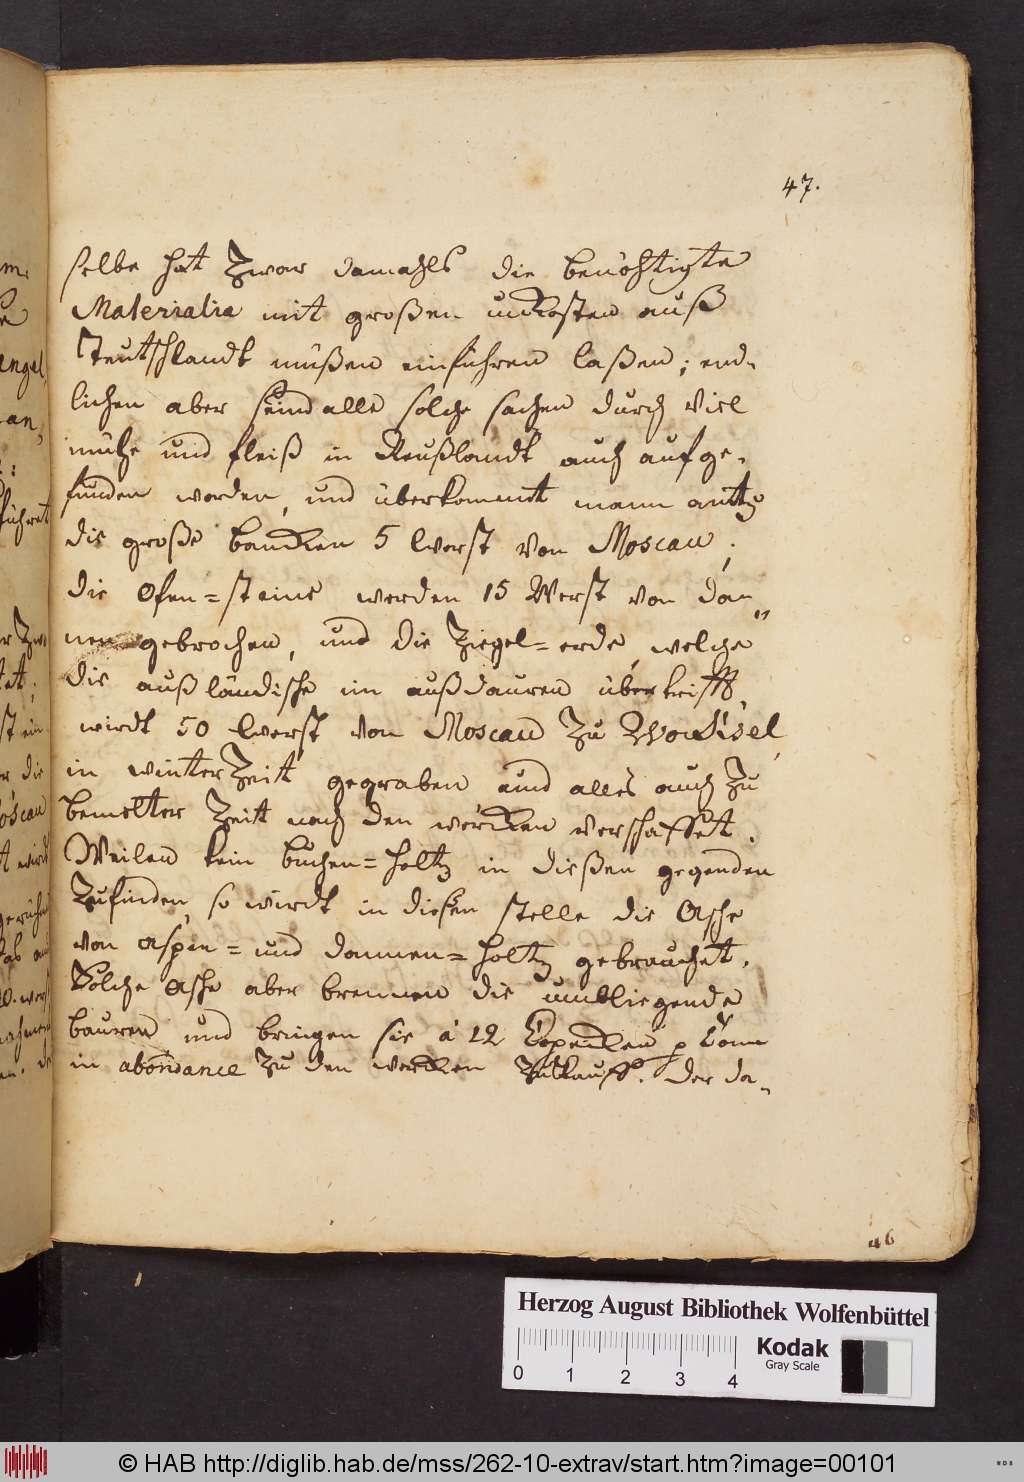 47.
selbe hat zwar damahls die benöhtigte
Materialia mit großen unkosten auß
Teutschlandt müßen einführen laßen; end-
lichen aber seind alle solche sachen durch viel
mühe und fleiß in Reußlandt auch aufge-
funden worden, und überkommt mann anitzo
die große 5 Werst von Moscau;
die Ofen=steine werden 15 Werst von dan
nen gebrochen, und die Ziegel=erde, welche
die außländische im außdauren übertrifft,
wirdt 50 Werst von Moscau zu
in winter Zeit gegraben und alles auch zu
bemelter Zeit nach den wercken verschaffet.
Weilen kein büchen=holtz in dießen gegenden
zufinden, so wirdt in dießen stelle die Asche
von Aspen= und dannen=holtz gebrauchet.
Solche Asche aber brennen die umbliegende
bauren und bringen sie à 12 Copecken p Tonn
in abondance zu den wercken zu kauff. Der da-
46
Herzog August Bibliothek Wolfenbüttel
Kodak
Gray Scale
0 1 2 3 4
© HAB http://diglib.hab.de/mss/262-10-extrav/start.htm?image=00101